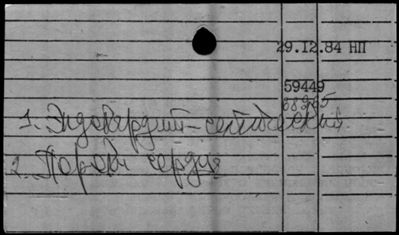 29.12.84 НП
59449
88265
1. Эндокардит – септический.
2. Пороки сердца